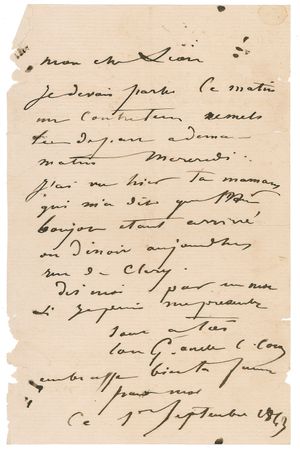 mon cher Léon
Je devais partir ce matin
un contretems remets
le départ a demain
matin Mercredi.
J'ai vu hier ta maman
qui m'a dit que Mr
étant arrivé
on dinait aujourdhui
rue de Clery.
dis moi par un mot
si je puis me presenter
tout a toi
ton G.
embrasse bien ta femme
pour moi
Ce 1er Septembre 1863